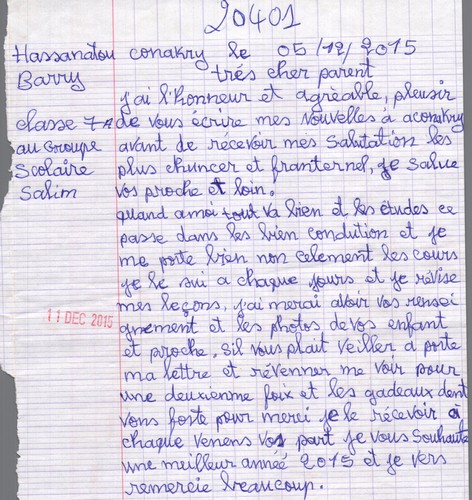 20401
Hassanatou conakry le 05/12/2015
Barry très cher parent
j'ai l'honneur et agrèable, pleusir
classe 7A de vous écrire mes nouvelles à aconakry
au Groupe avant de récevoir mes salutation les
Scolaire plus chuncer et franternel, je salue
Salim vos proche et loin.
quand amoi tout va bien et les études ce
passe dans les bien condution et je
me porte bien non celement les cours
je le sui a chaque jours et je révise
mes leçons, j'ai merai avoir vos rensei
11 DEC 2015 gnement et les photos de vos enfant
et proche. sil vous plait veiller à porte
ma lettre et révenner me voir pour
une deuxienme foix et les gadeaux dent
vons foste pour merci je le récevoir a
chaque venens vos part je vous souhaite
une meilleur année 2015 et je vers
remercie beaucoup.